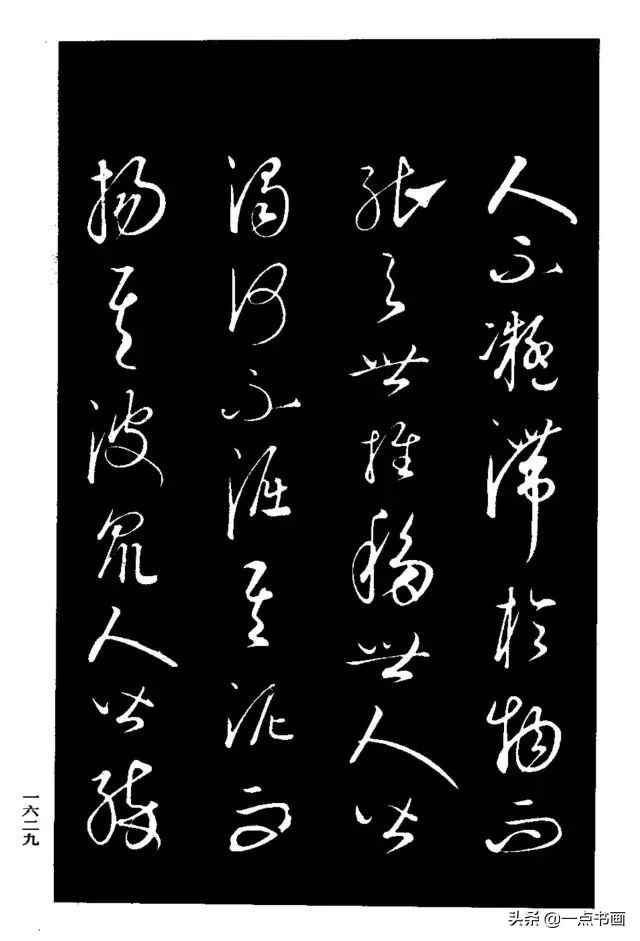 人不凝滯於物而
能与世推移世人皆
濁何不淈其泥而
揚其波眾人皆醉
一六二九
头条 @一点书画